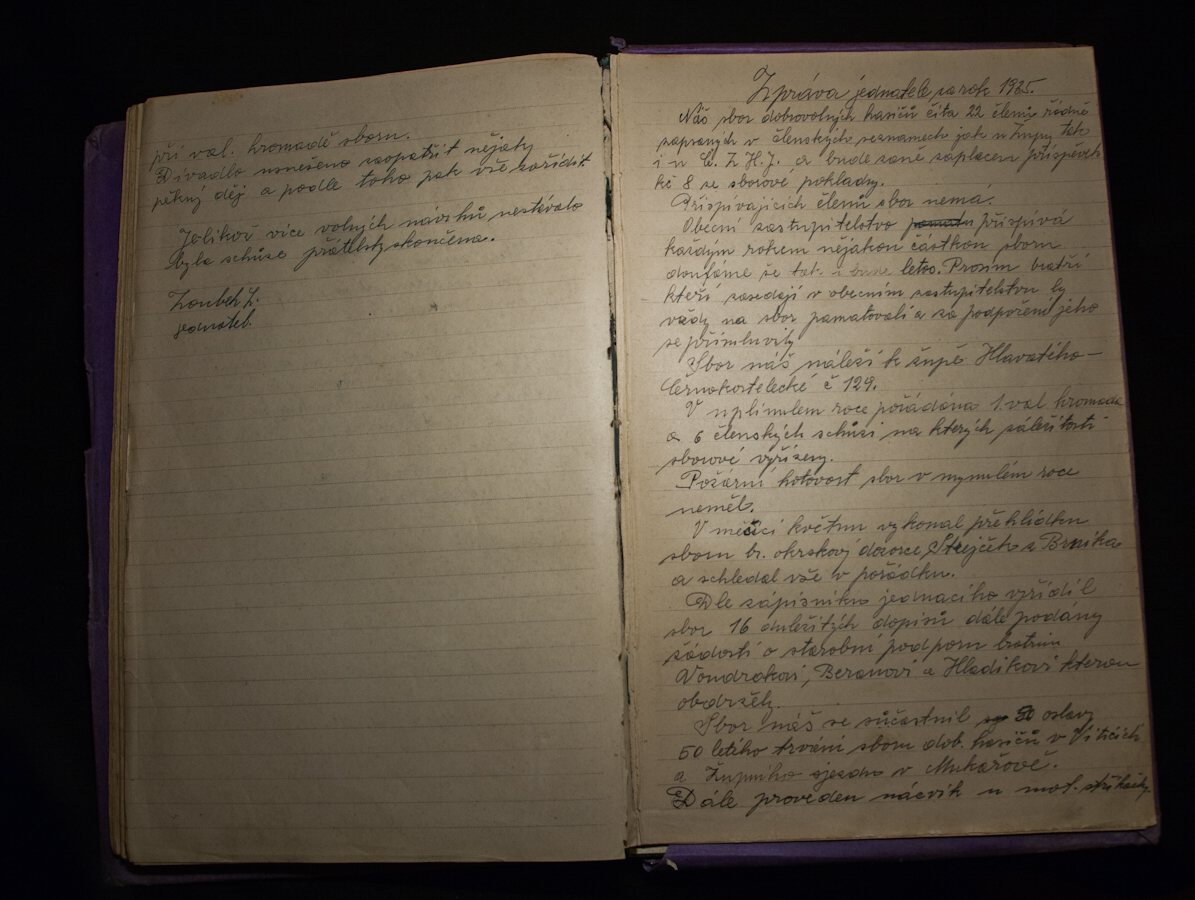 při val. hromadě sboru.
Divadlo usnešeno zaopatřit nějaký
pěkný děj a podle toho pak vše zařídit
Jelikož více volných návrhů nestávalo
byla schůze přátelsky skončena.
Zoubek J.
jednatel.
Zpráva jednatele za rok 1935.
Náš sbor dobrovolných hasičů čítá 22 členů řádně
zapsaných v členských seznamech jak u župy tak
i u Č. Z. H. J. a bude zané zaplacen příspěvek
kč 8 ze sborové pokladny.
Přispívajících členů sbor nemá.
Obecní zastupitelstvo pamatu přispívá
každým rokem nějakou částkou sboru
doufáme že tak i bude letos. Prosím bratří
kteří zasedají v obecním zastupitelstvu by
vždy na sbor pamatovali a za podpoření jeho
se přimluvily
Sbor náš náleží k župě Hlavatého-
Černokostelecké č 129.
V uplinulem roce pořádána 1. val hromada
a 6 členských schůzí na kterých záležitosti
sborové vyřízeny.
Požární hotovost sbor v mynulém roce
neměl.
V měsíci květnu vykonal přehlídku
sboru br. okrskový dozorce Strejček z Brníka
a schledal vše v pořádku.
Dle zápisníku jednacího vyřídil
sbor 16 důležitých dopisů dále podány
žádosti o starobní podporu bratrům
Vondrákovi, Beranovi a Hladíkovi kterou
obdržely.
Sbor náš se súčastnil 50 oslavy
50 letího trvání sboru dob. hasičů v Viticích
a Župního sjezdu v Mukařově.
Dále proveden nácvik u mot. stříkačky